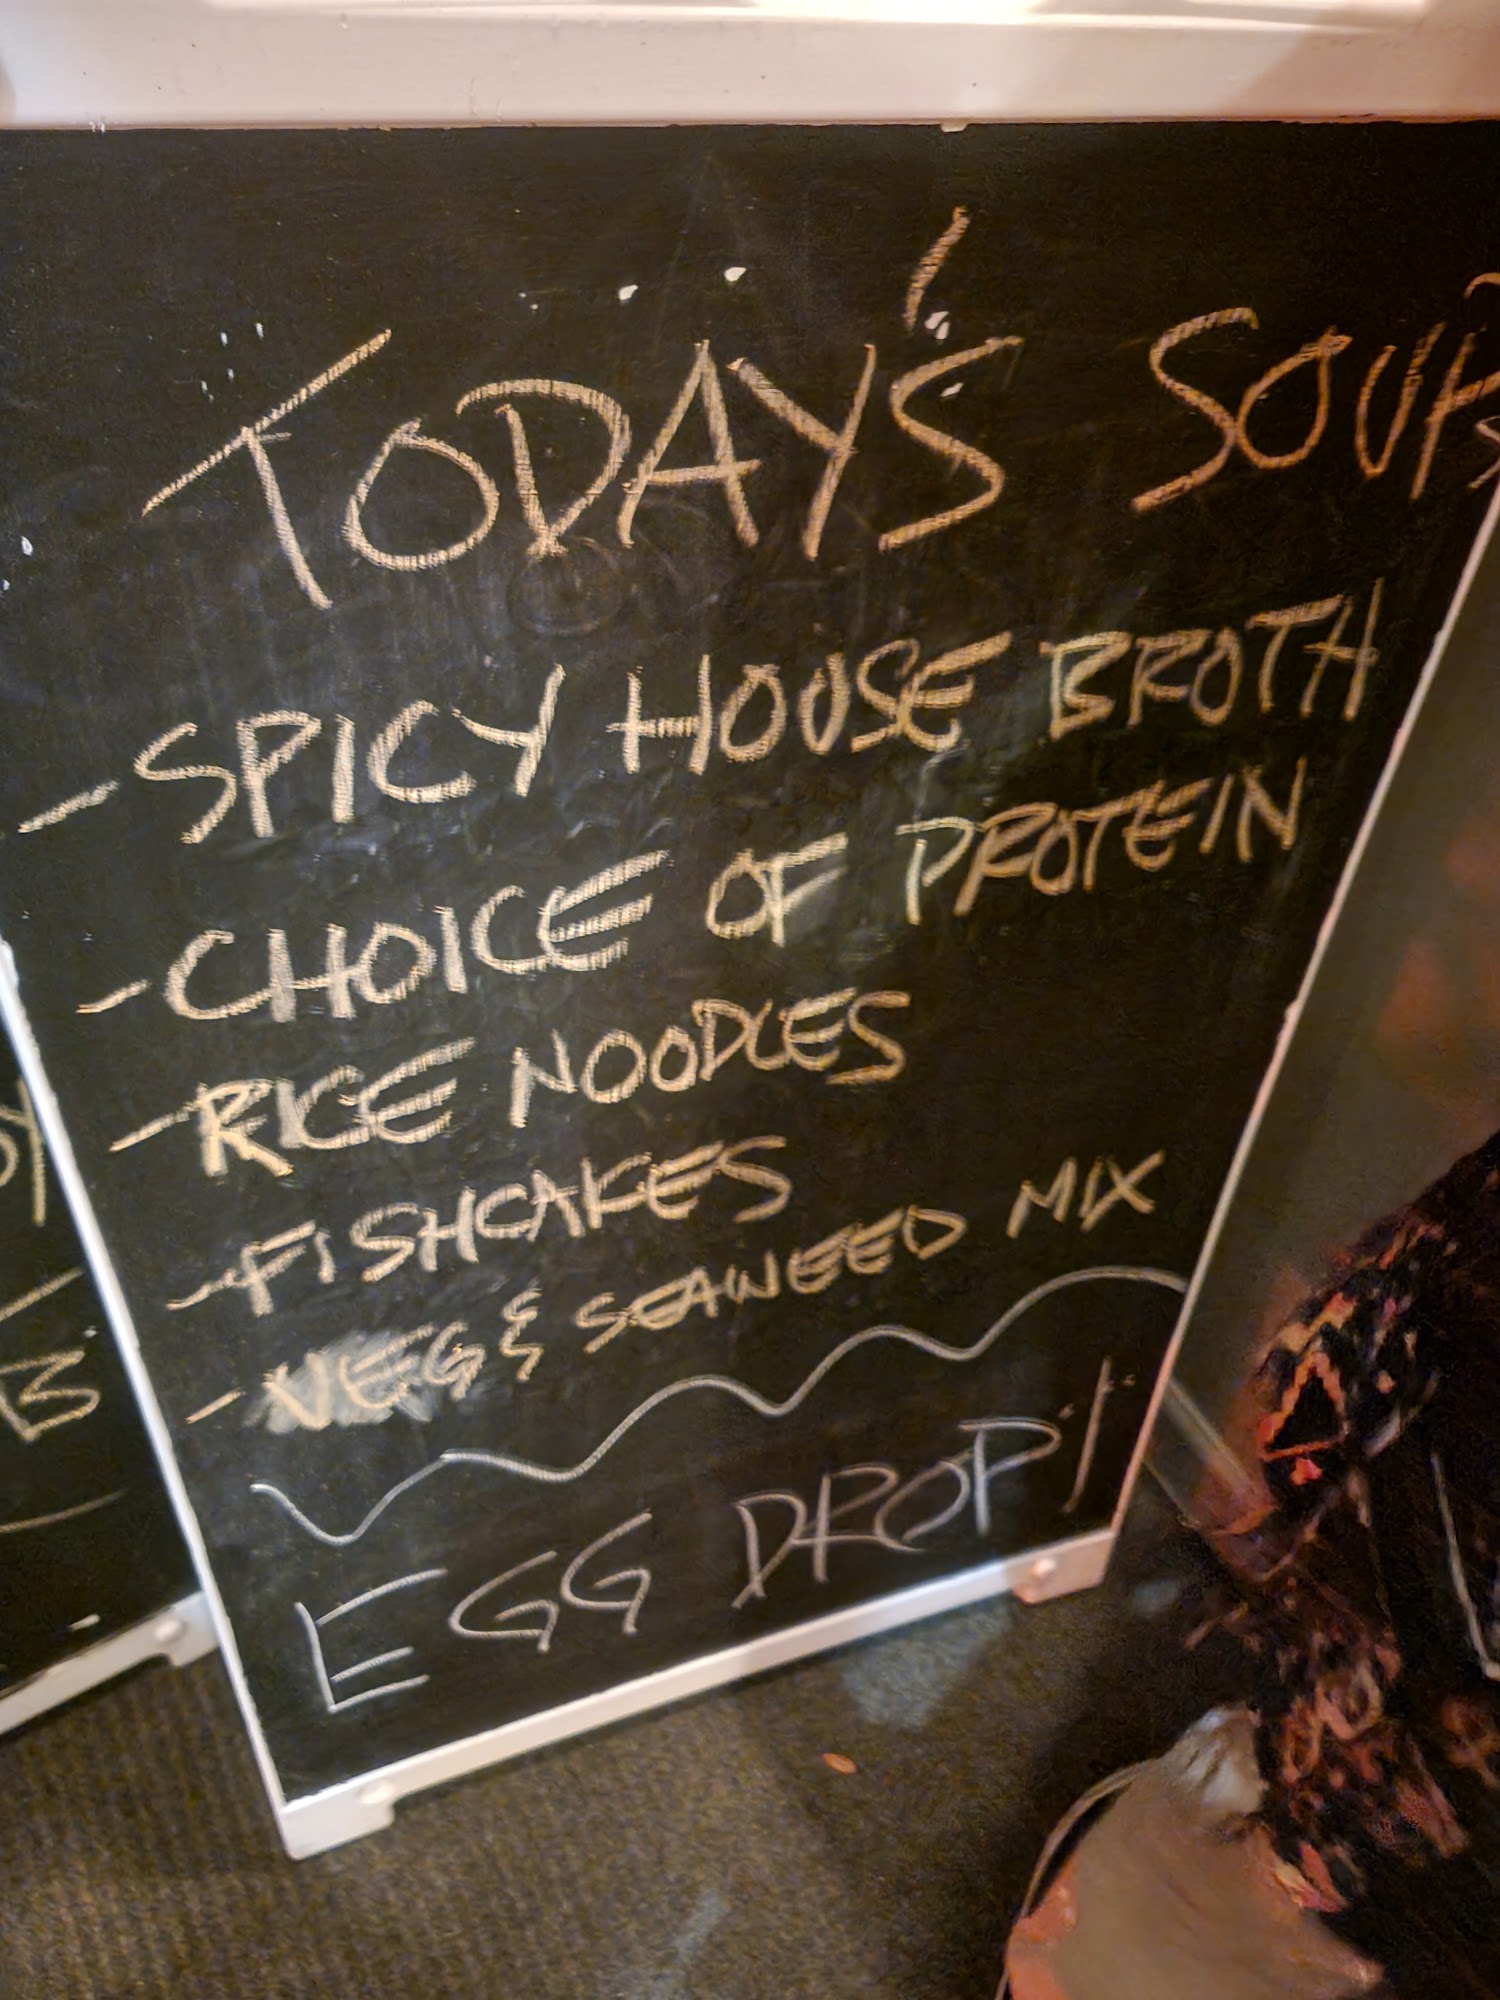 TODAY'S SOUPS
- SPICY HOUSE BROTH
- CHOICE OF PROTEIN
- RICE NOODLES
- FISHCAKES
- VEG & SEAWEED MIX
EGG DROP!